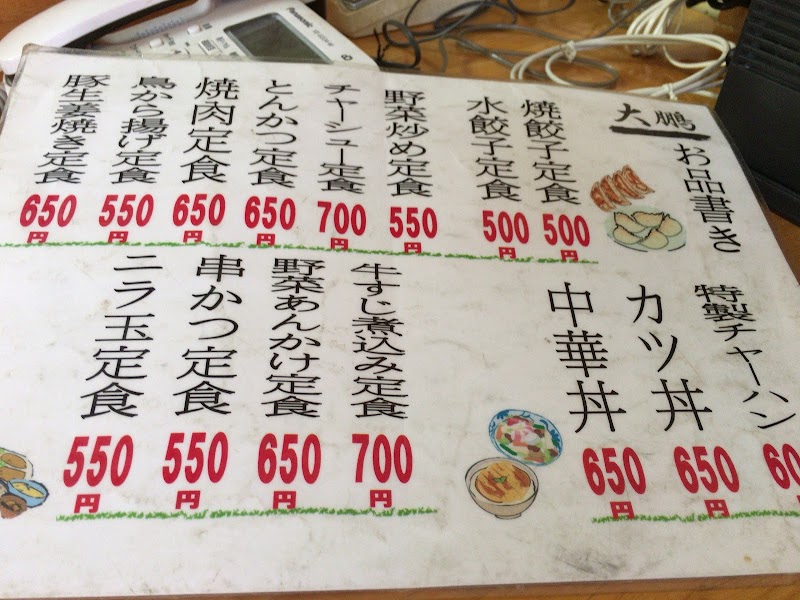 大鵬
お品書き
焼餃子定食
500円
水餃子定食
500円
野菜炒め定食
550円
チャーシュー定食
700円
とんかつ定食
650円
焼肉定食
650円
鳥から揚げ定食
550円
豚生姜焼き定食
650円
特製チャーハン
60
カツ丼
650円
中華丼
650円
牛すじ煮込み定食
700円
野菜あんかけ定食
650円
串かつ定食
550円
ニラ玉定食
550円
Panasonic